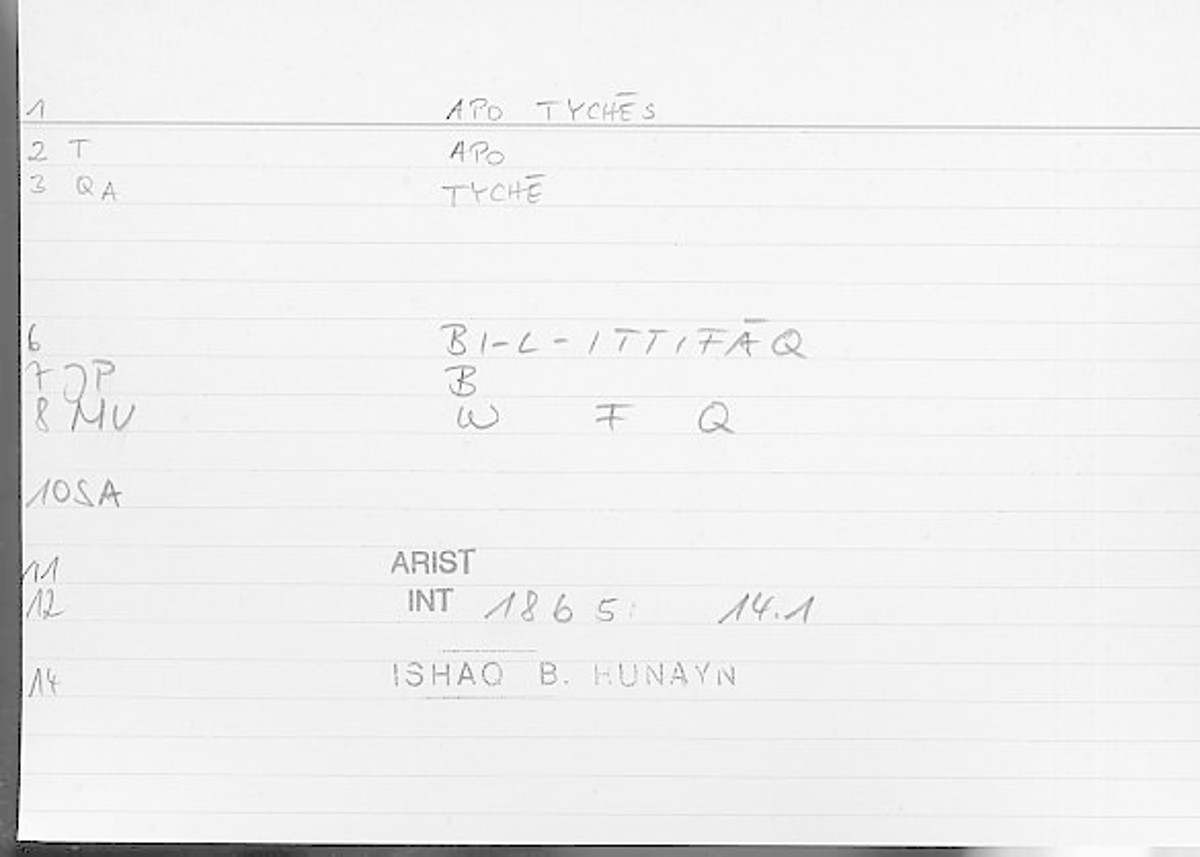 1 APO TYCHĒS
2 T APO
3 QA TYCHĒ
6 BI-L-ITTIFĀQ
7 JP B
8 MU W F Q
10 SA
11 ARIST
12 INT 1865: 14.1
14 ISHAQ B. HUNAYN